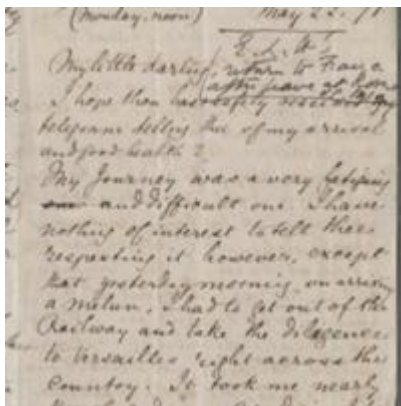 (Monday, noon) May 22. 71
E. L. W's
My little darling, return to France
after leave at Rome
I hope thou hast safely received my
telegram telling thee of my arrival
and good health?
My Journey was a very fatiguing
and difficult one. I have
nothing of interest to tell thee
respecting it however, except
that yesterday morning, on arriving
a Melun, I had to get out of the
Railway and take the diligence
to Versailles right across the
country. It took me nearly